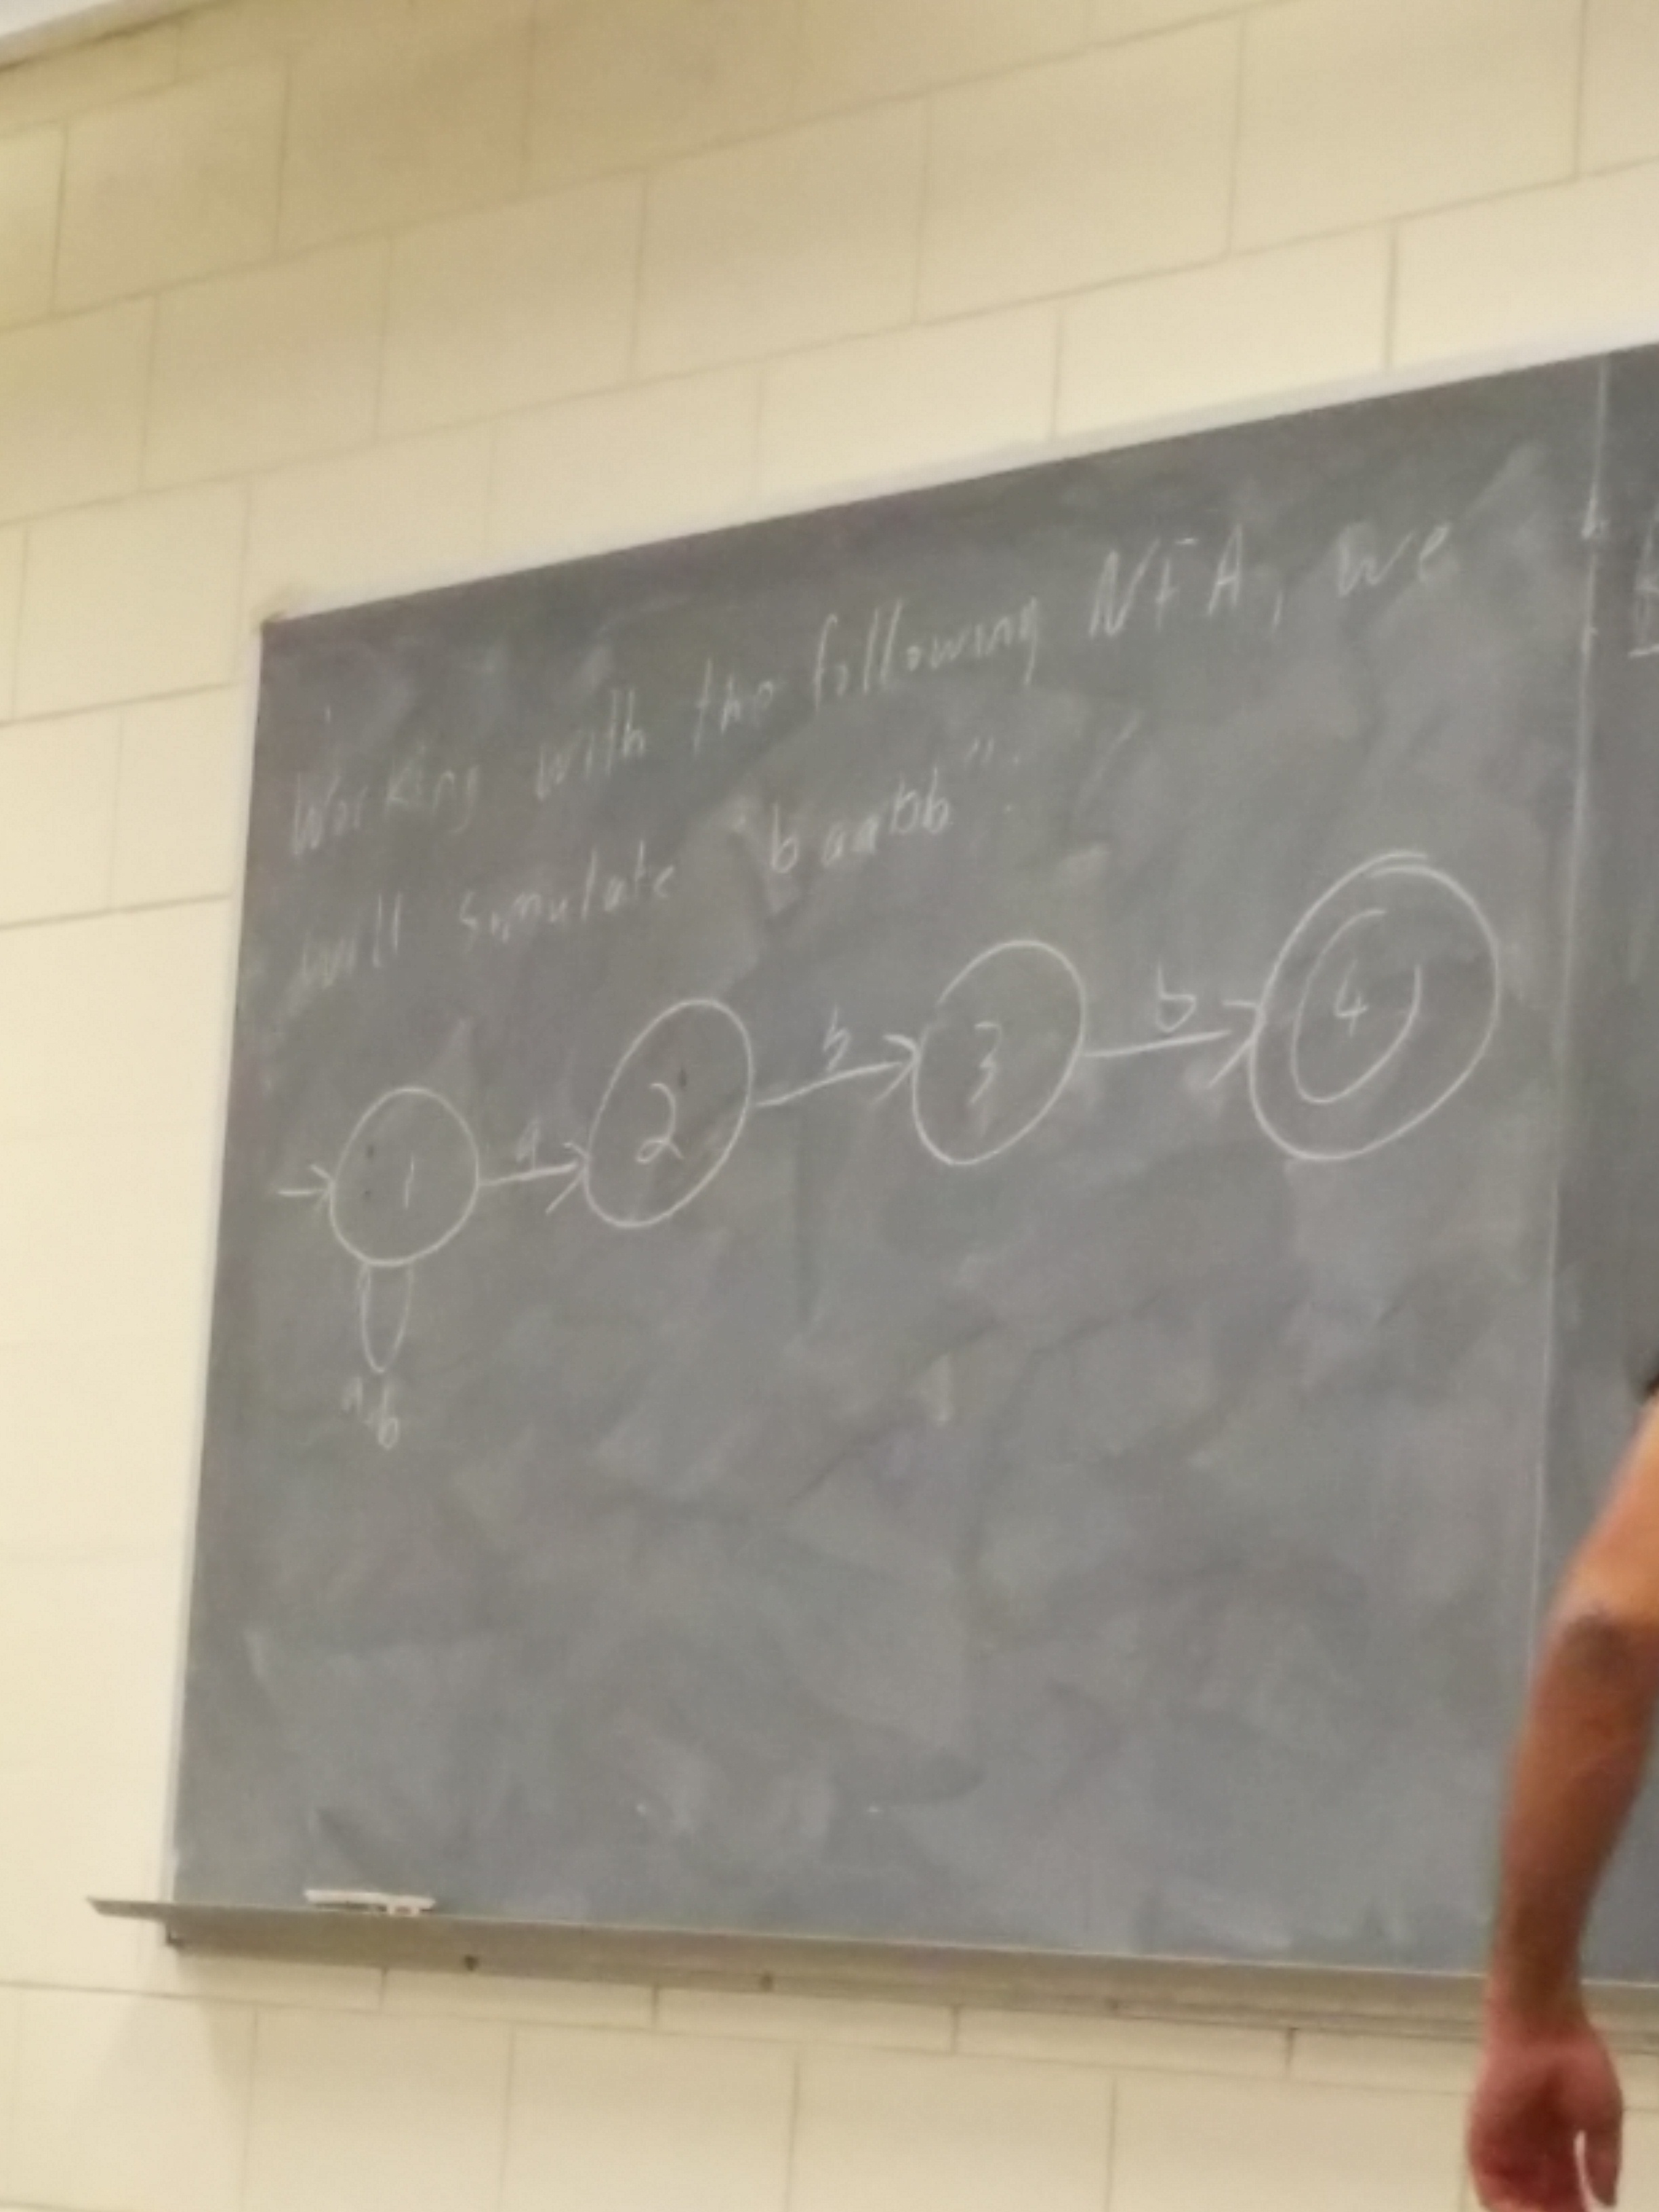 Working with the following NFA, we
will simulate "baabb".
b
b
a
4
3
2
1
a,b